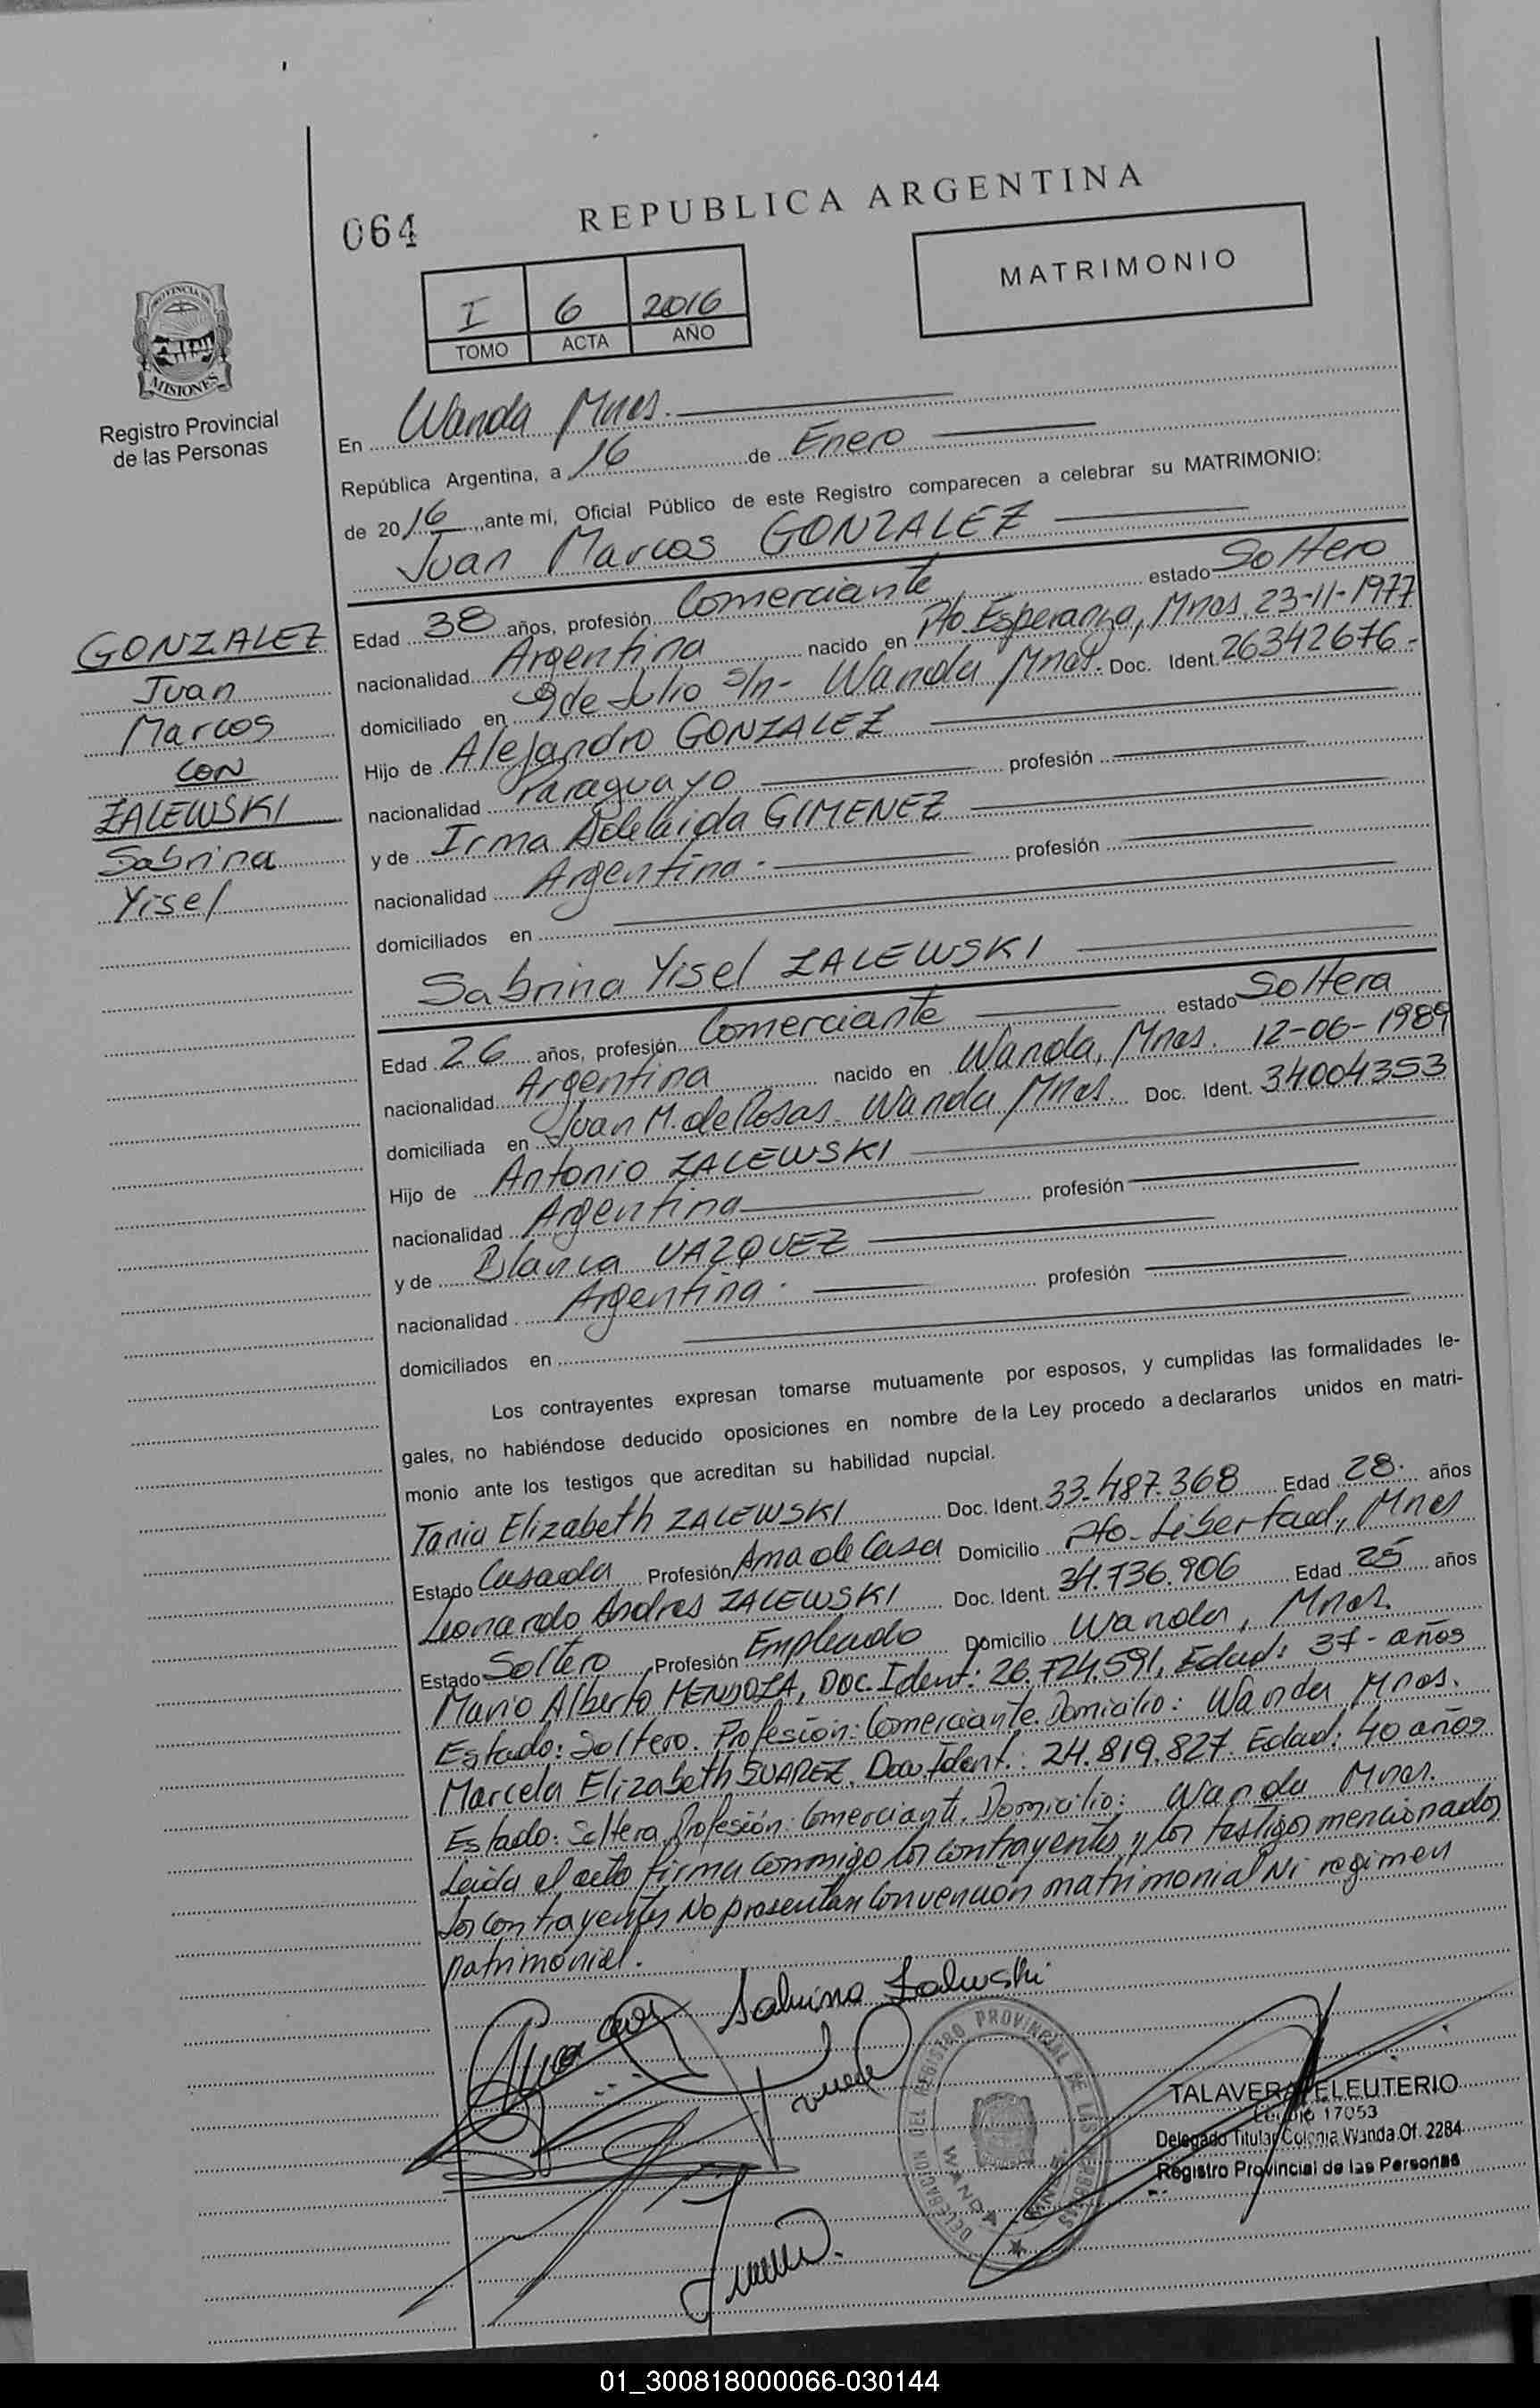 REPUBLICA ARGENTINA
064
MATRIMONIO
I 6 2016
TOMO ACTA AÑO
PROVINCIA DE
MISIONES
Registro Provincial
de las Personas
GONZALEZ
Juan
Marcos
CON
ZALEWSKI
Sabrina
Yisel
En Wanda Mnes.
República Argentina, a 16 de Enero
de 2016, ante mi, Oficial Público de este Registro comparecen a celebrar su MATRIMONIO:
Juan Marcos GONZALEZ
Edad 38 años, profesión Comerciante estado Soltero
nacionalidad Argentina nacido en Pto. Esperanza, Mnes, 23-11-1977
domiciliado en 9 de Julio s/n- Wanda Mnes. Doc. Ident. 26342676-
Hijo de Alejandro GONZALEZ
nacionalidad Paraguayo profesión
y de Irma Adelaida GIMENEZ
nacionalidad Argentina. profesión
domiciliados en
Sabrina Yisel ZALEWSKI
Edad 26 años, profesión Comerciante estado Soltera
nacionalidad Argentina nacido en Wanda, Mnes. 12-06-1989
domiciliada en Juan M. de Rosas. Wanda Mnes. Doc. Ident. 34004353
Hijo de Antonio ZALEWSKI
nacionalidad Argentina profesión
y de Blanca VAZQUEZ
nacionalidad Argentina. profesión
domiciliados en
Los contrayentes expresan tomarse mutuamente por esposos, y cumplidas las formalidades le-
gales, no habiéndose deducido oposiciones en nombre de la Ley procedo a declararlos unidos en matri-
monio ante los testigos que acreditan su habilidad nupcial.
Tania Elizabeth ZALEWSKI Doc. Ident. 33.487.368 Edad 28. años
Estado Casada Profesión Ama de Casa Domicilio Pto-Libertad, Mnes
Leonardo Andres ZALEWSKI Doc. Ident. 34.736.906 Edad 25 años
Estado Soltero Profesión Empleado Domicilio Wanda, Mnes.
Mario Alberto MENDOZA, Doc. Ident: 26.724.591, Edad: 37-años
Estado: Soltero. Profesión: Comerciante. Domicilio: Wanda Mnes.
Marcela Elizabeth SUAREZ. Doc. Ident.: 24.819.827. Edad: 40 años
Estado: Soltera. Profesión: Comerciante. Domicilio: Wanda Mnes.
Leida el acto firma conmigo los contrayentes y los testigos mencionados
Los contrayentes No presentan Convención matrimonial Ni regimen
patrimonial.
Sabrina Zalewski
DELEGACION DEL REGISTRO PROVINCIAL DE LAS PERSONAS
WANDA MNES.
TALAVERA ELEUTERIO
Legajo 17053
Delegado Titular Colonia Wanda Of. 2284
Registro Provincial de las Personas
01_300818000066-030144